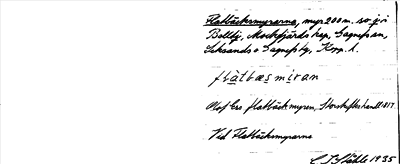 Flatbäcksmyrarna, myr 200 m. so. jvi
Mockfjärds kap, Gagnefsm,
Leksands o Gagnefs tg, Kopp. l.
flàtbæsmi̱ran
Olof Ers flatbäckmyren, Storskifteshandl 1817
Vid Flatbäcksmyrarne
Ståhle 1935